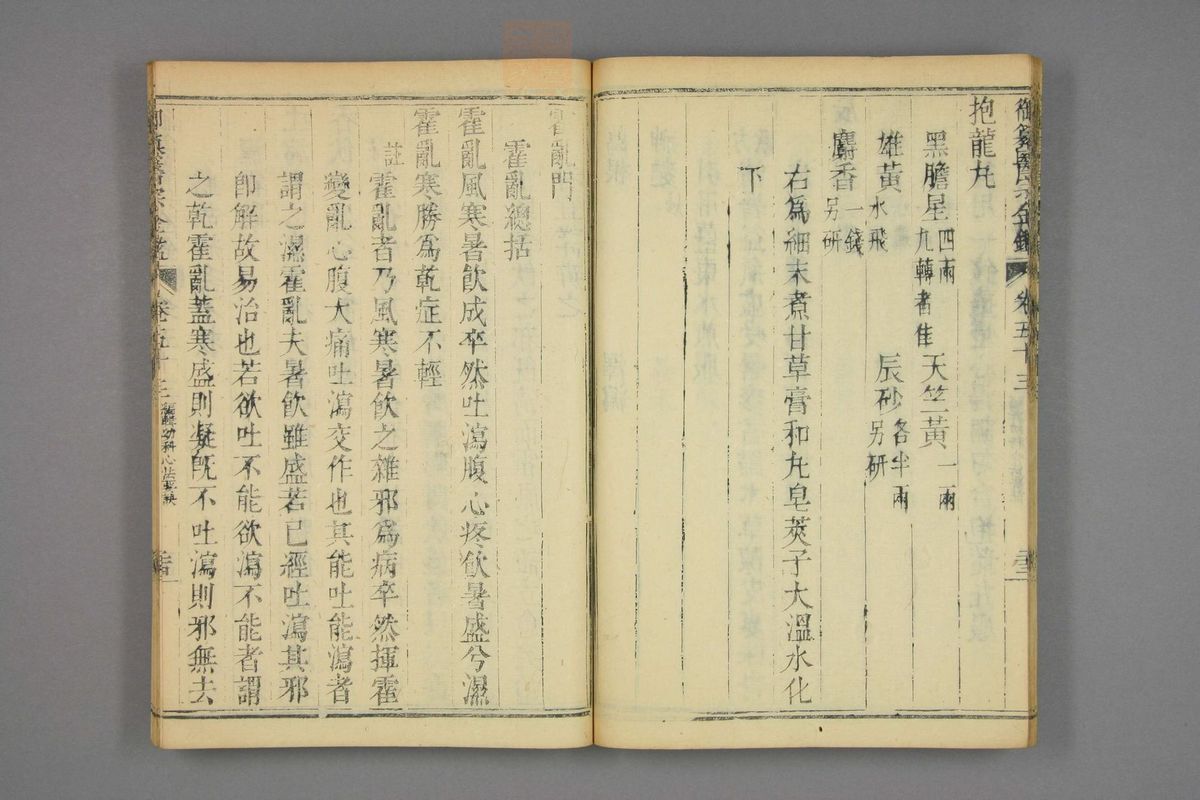 御纂醫宗金鑑 卷五十三
抱龍丸
黑膽星四兩九轉者佳 天竺黃一兩
雄黃水飛 辰砂另研各半兩
麝香一錢另研
右爲細末煮甘草膏和丸皂莢子大溫水化
下
霍亂門
霍亂總括
霍亂風寒暑飲成卒然吐瀉腹心疼飲暑盛兮濕
霍亂寒勝爲乾症不輕
註霍亂者乃風寒暑飲之雜邪爲病卒然揮霍
變亂心腹大痛吐瀉交作也其能吐能瀉者
謂之濕霍亂夫暑飲雖盛若已經吐瀉其邪
卽解故易治也若欲吐不能欲瀉不能者謂
之乾霍亂蓋寒盛則凝旣不吐瀉則邪無去
御纂醫宗金鑑 卷五十三 編輯幼科心法要訣